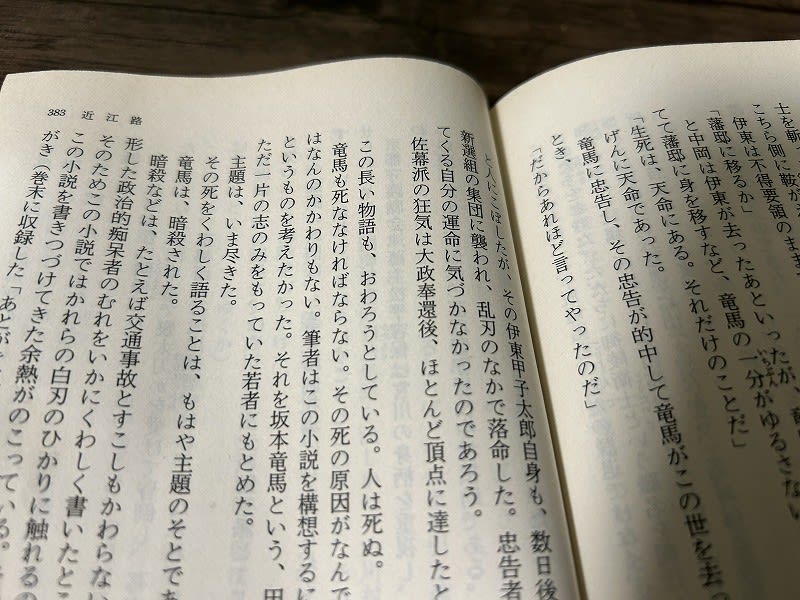 士を斬
こちら側に鞍が
伊東は不得要領のまま
「藩邸に移るか」
と中岡は伊東が去ったあといったが、竜
「藩邸に身を移すなど、竜馬の一分がゆるさない
いちぶん
てて藩邸に身を移す
「生死は、天命にある。それだけのことだ」
げんに天命であった。
竜馬に忠告し、その忠告が的中して竜馬がこの世を去っ
とき、
「だからあれほど言ってやったのだ」
と人にこぼしたが、その伊東甲子太郎自身も、数日後
新選組の集団に襲われ、乱刃のなかで落命した。忠告者
てくる自分の運命に気づかなかったのであろう。
佐幕派の狂気は大政奉還後、ほとんど頂点に達したと
この長い物語も、おわろうとしている。人は死ぬ。
竜馬も死ななければならない。その死の原因がなんで
はなんのかかわりもない。筆者はこの小説を構想するに
というものを考えたかった。それを坂本竜馬という、田
ただ一片の志のみをもっていた若者にもとめた。
主題は、いま尽きた。
その死をくわしく語ることは、もはや主題のそとであ
竜馬は、暗殺された。
暗殺などは、たとえば交通事故とすこしもかわらない
形した政治的痴呆者のむれをいかにくわしく書いたとこ
そのためこの小説ではかれらの白刃のひかりに触れるの
この小説を書きつづけてきた余熱がのこっている。
がき（巻末に収録した「あとが
383 近江路